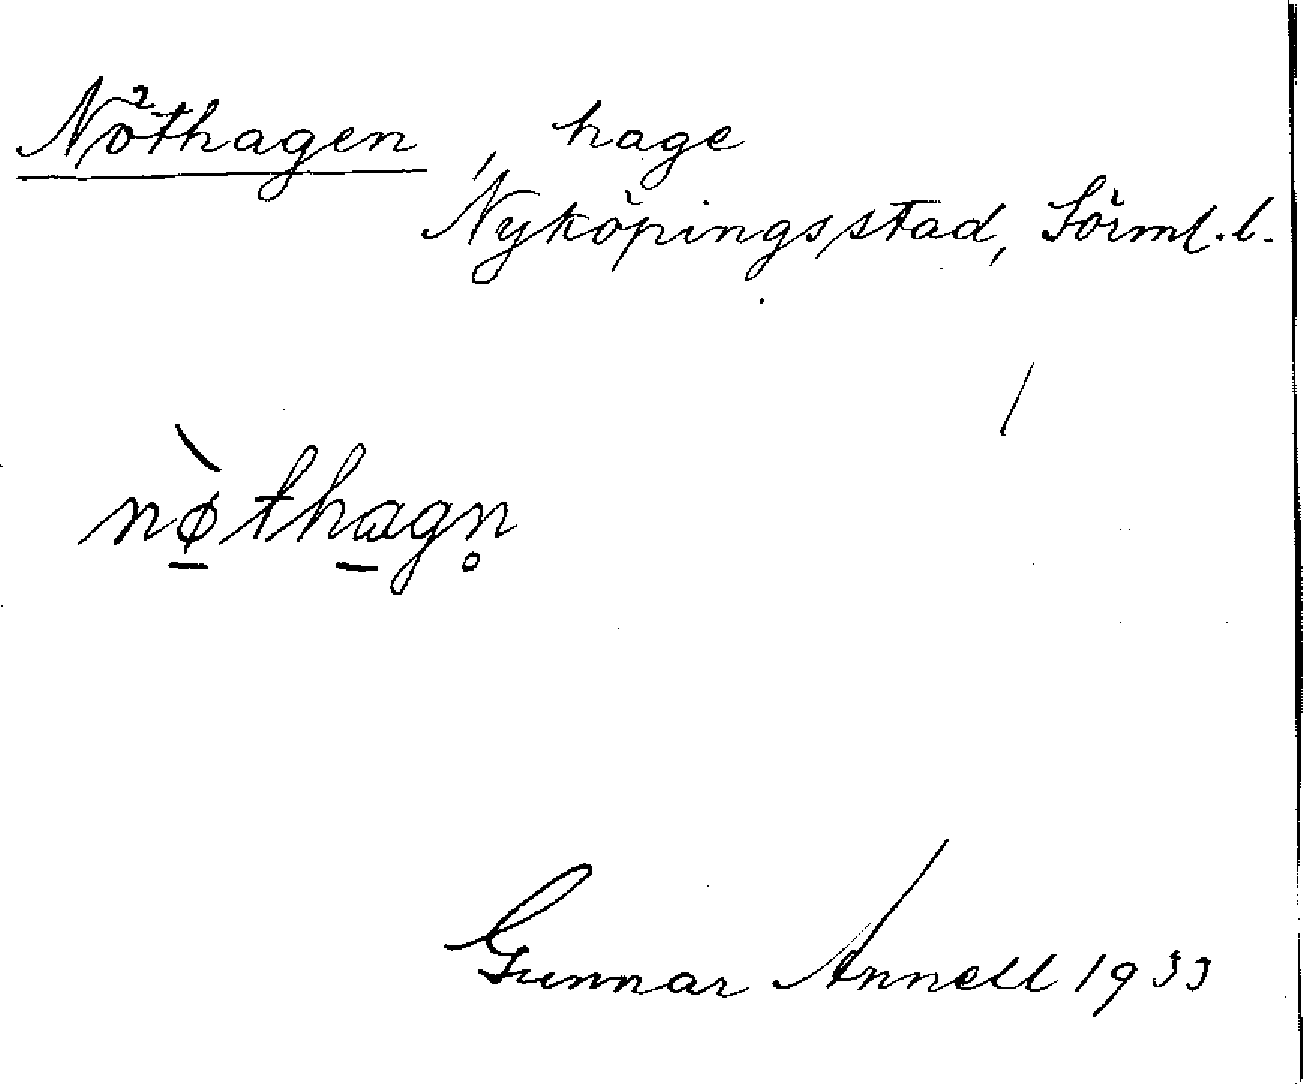 Nöthagen, hage
Nyköpings stad, Sörml. l.
nø̀thagn̥
Gunnar Annell 1933